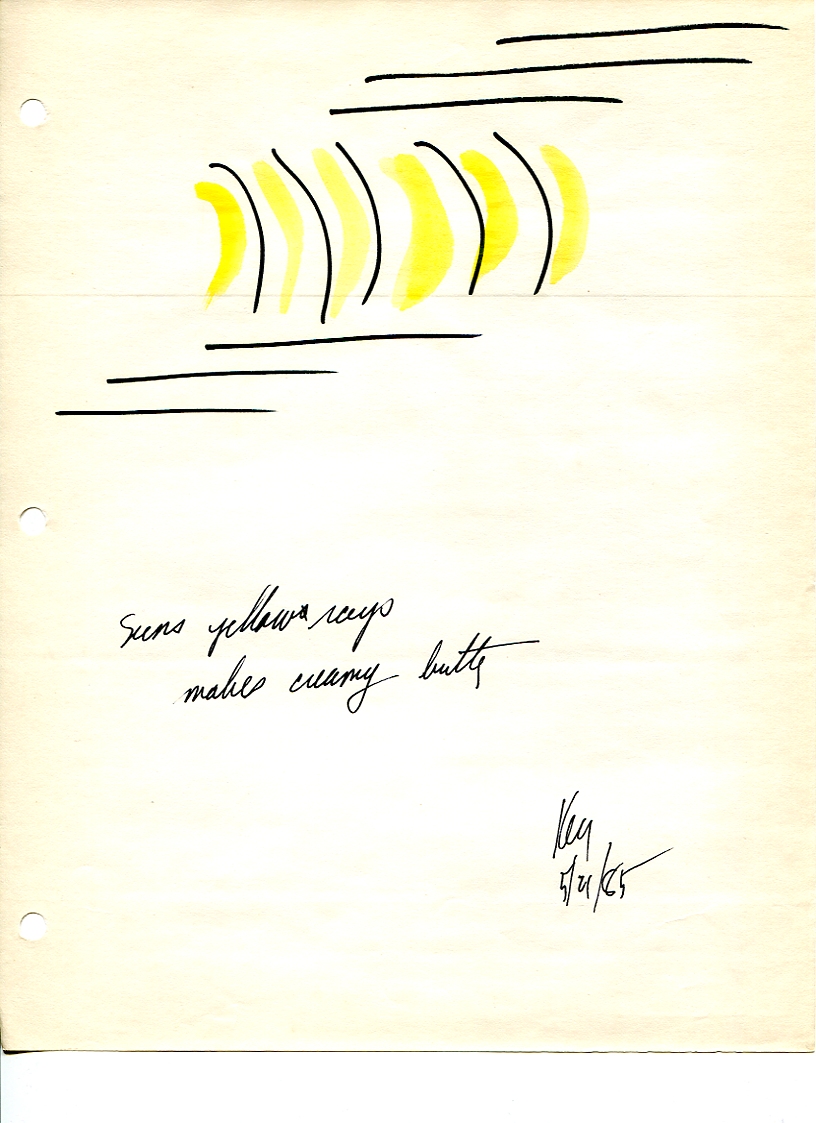 Suns yellow rays
makes creamy butter
Key
5/21/85